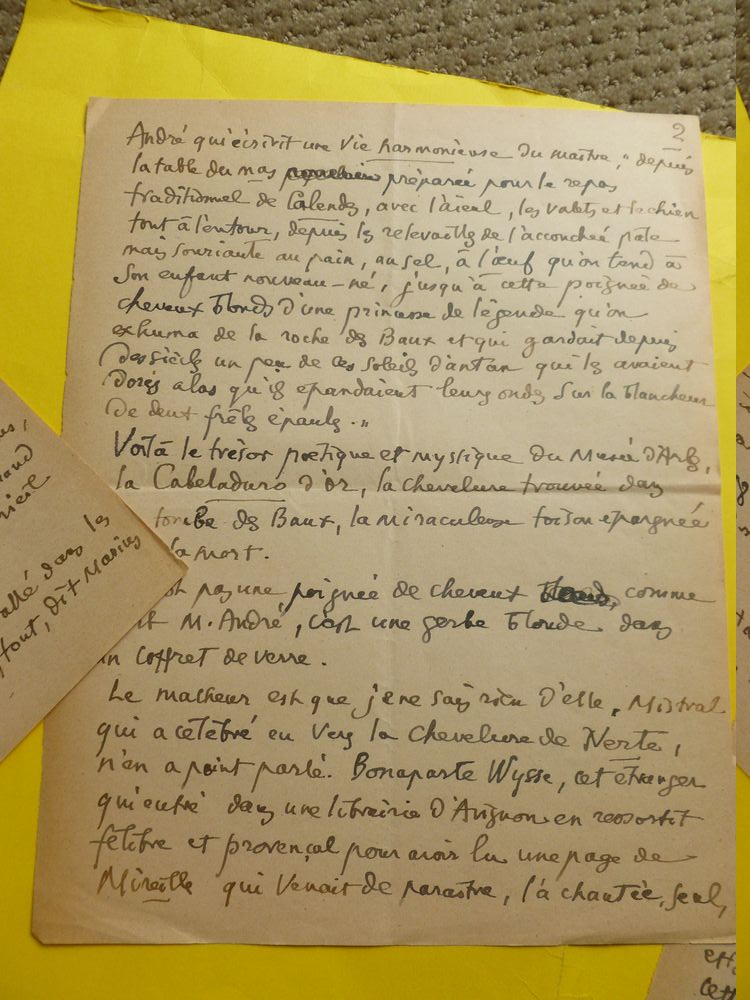 2
André qui écrivit une vie harmonieuse du maître, " depuis
la table du mas préparée pour le repas
traditionnel de Calendes, avec l'aïeul, les valets et le chien
tout à l'entour, depuis les relevailles de l'accouchée pâle
mais souriante au pain, au sel, à l'œuf qu'on tend à
son enfant nouveau-né, jusqu'à cette poignée de
cheveux blonds d'une princesse de légende qu'on
exhuma de la roche des Baux et qui gardait depuis
des siècles un peu de ces soleils d'antan qui les avaient
dorés alors qu'ils epandaient leurs ondes sur la blancheur
de deux frêles épaules. "
Voilà le trésor poétique et mystique du Musée d'Arles,
la Cabeladuro d'Or, la chevelure trouvée dans
tombe des Baux, la miraculeuse toison epargnée
la mort.
pas une poignée de cheveux blonds, comme
M. André, c'est une gerbe blonde dans
un coffret de verre.
Le malheur est que je ne sais rien d'elle. Mistral
qui a célébré en vers la chevelure de Nerte,
n'en a point parlé. Bonaparte Wysse, cet étranger
qui entré dans une librairie d'Avignon en ressortit
félibre et provençal pour avoir lu une page de
Mireille qui venait de paraître, l'a chantée, seul,
dans les
tout, dit Marius